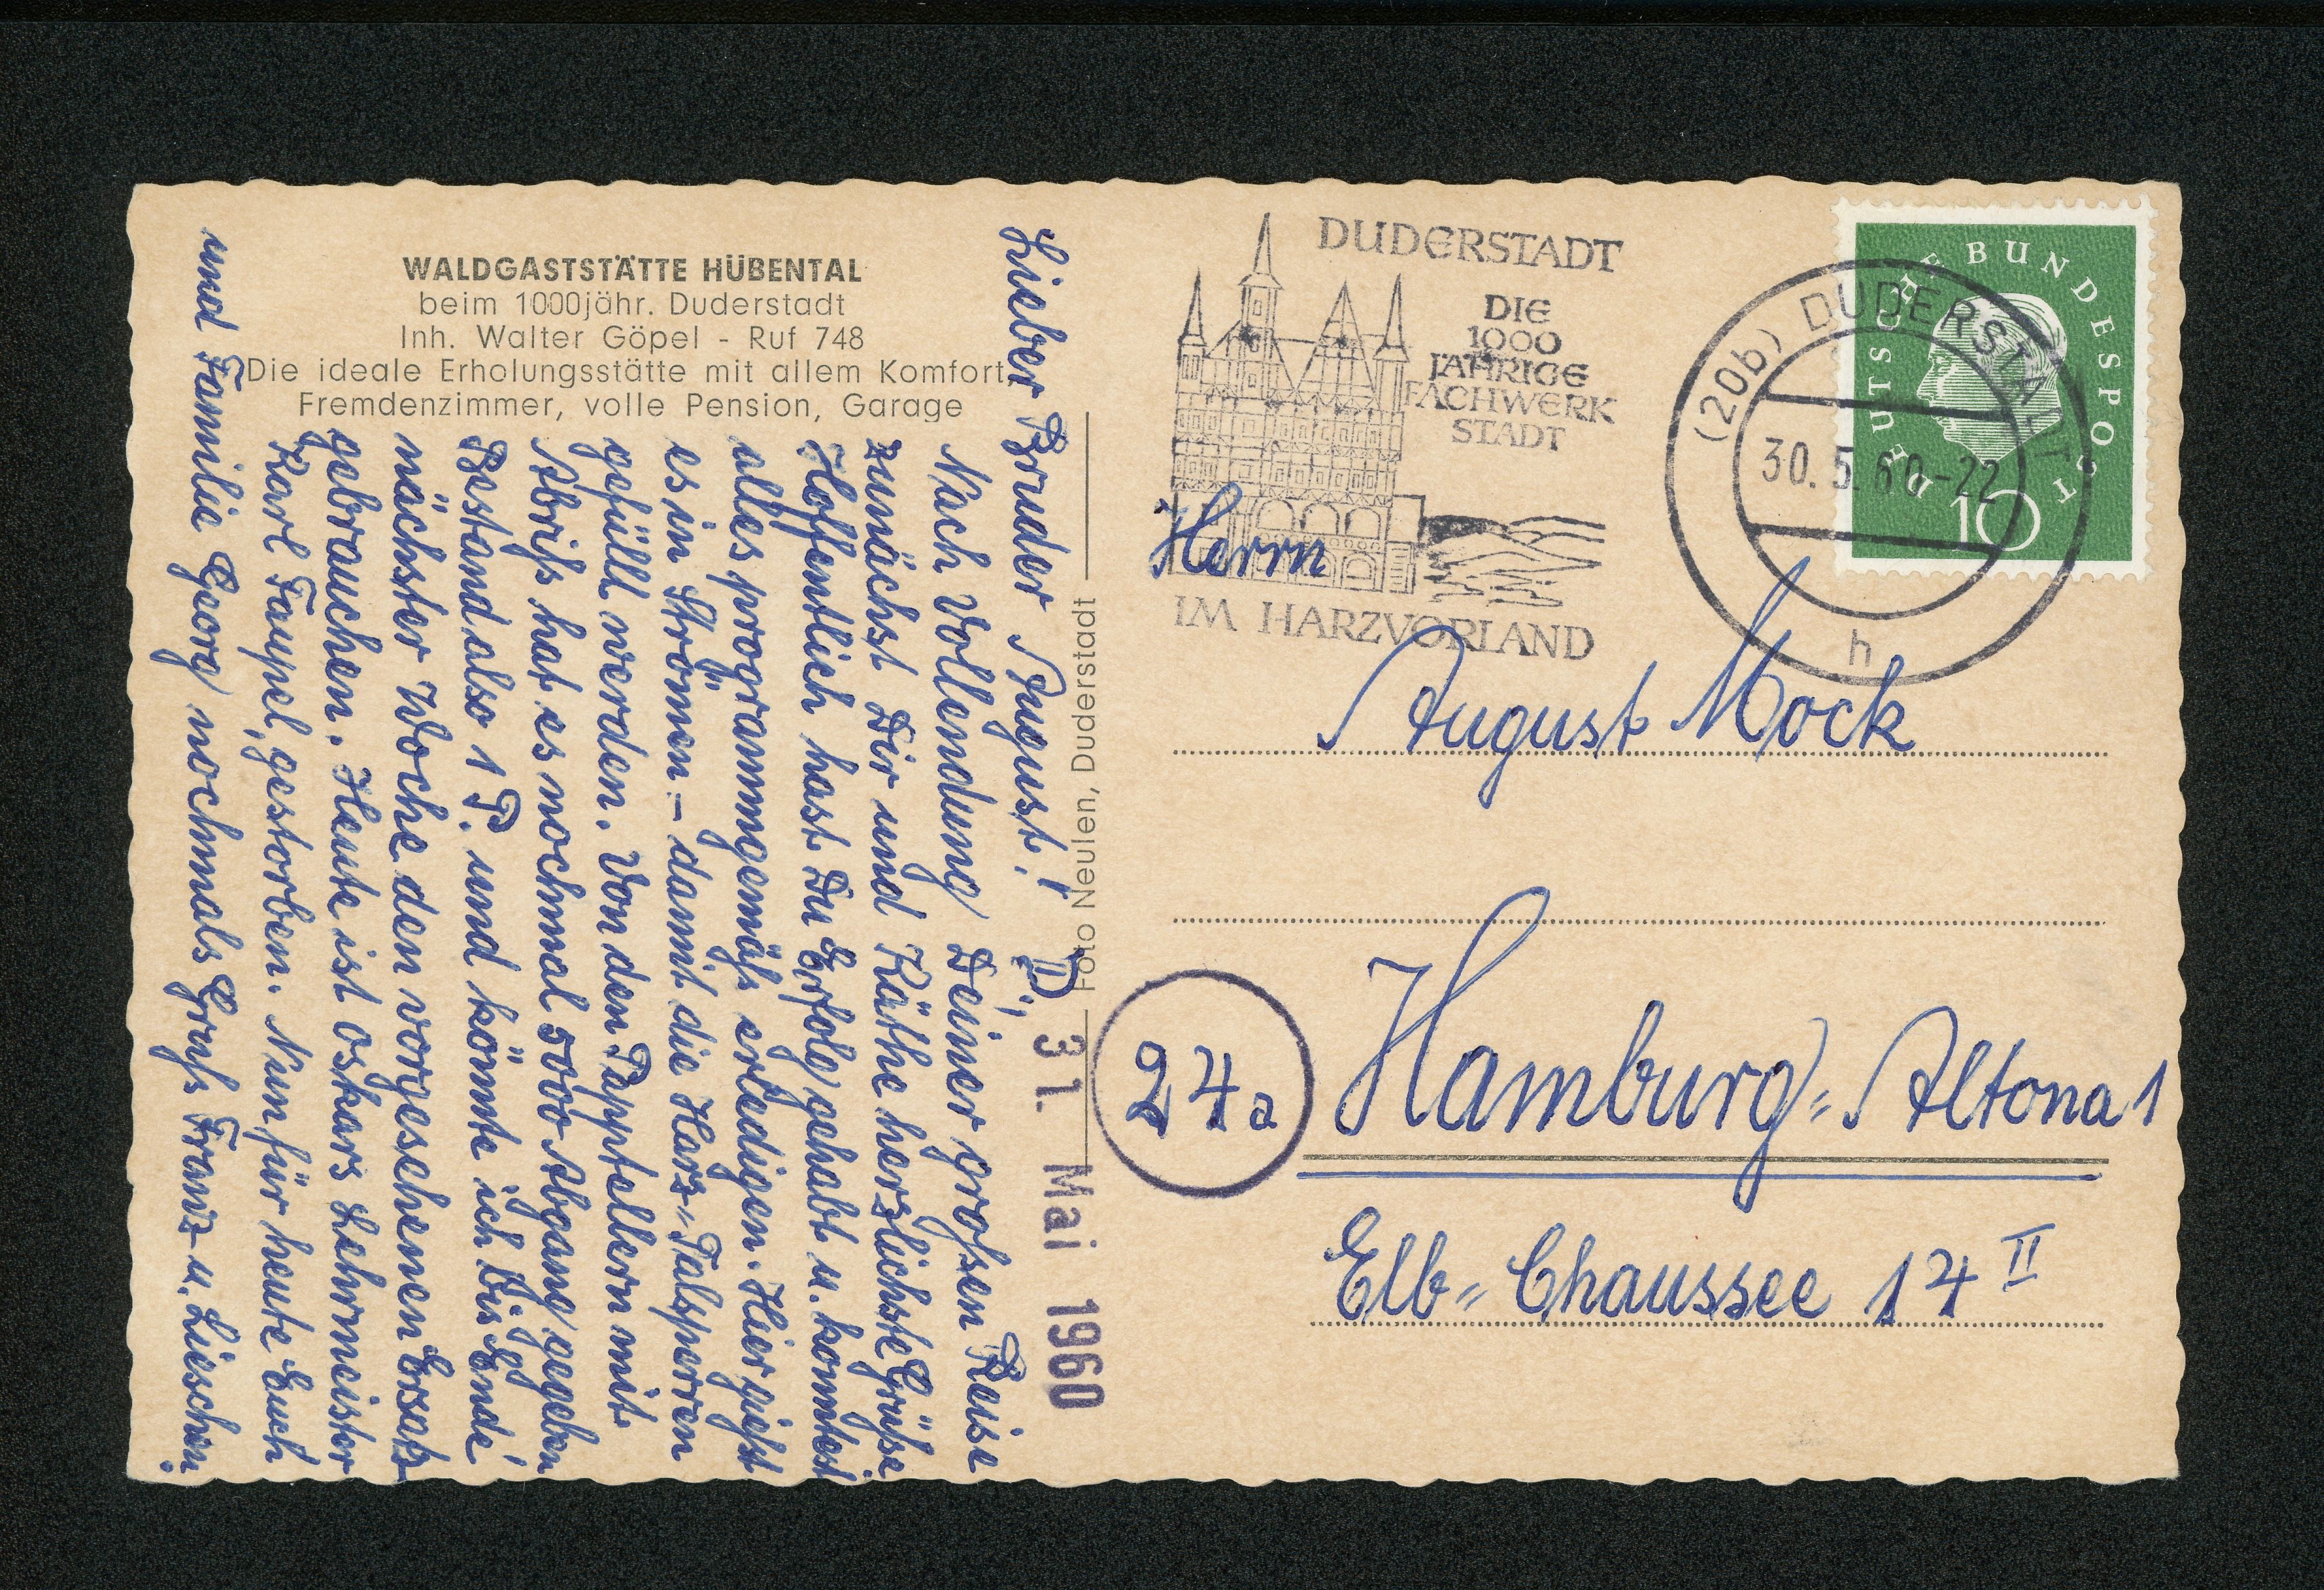 WALDGASTSTÄTTE HÜBENTAL
beim 1000jähr. Duderstadt
Inh. Walter Göpel - Ruf 748
Die ideale Erholungsstätte mit allem Komfort
Fremdenzimmer, volle Pension, Garage
Lieber Bruder August!
Nach Vollendung Deiner großen Reise
zunächst Dir und Käthe herzlichste Grüße
Hoffentlich hast Du Erfolg gehabt u. konntest
alles programmgemäß erledigen. Hier gießt
es in Strömen - damit die Harz-Talsperren
gefüllt werden. Von den Papptellern mit
Abriß hat es nochmal 5000 Abgang gegeben
Bestand also 1 P. und könnte ich bis Ende
nächster Woche den vorgesehenen Ersatz
gebrauchen. Heute ist Oskars Lehrmeister
Karl Faupel, gestorben. Nun für heute Euch
und Familie Georg nochmals Gruß Franz u. Lieschen.
Foto Neulen, Duderstadt
31. Mai 1960
DUDERSTADT
DIE
1000
JÄHRIGE
FACHWERK
STADT
IM HARZVORLAND
(20b) DUDERSTADT
30.5.60-22
h
DEUTSCHE BUNDESPOST
10
Herrn
August Mock
24a
Hamburg-Altona 1
Elb-Chaussee 14 II